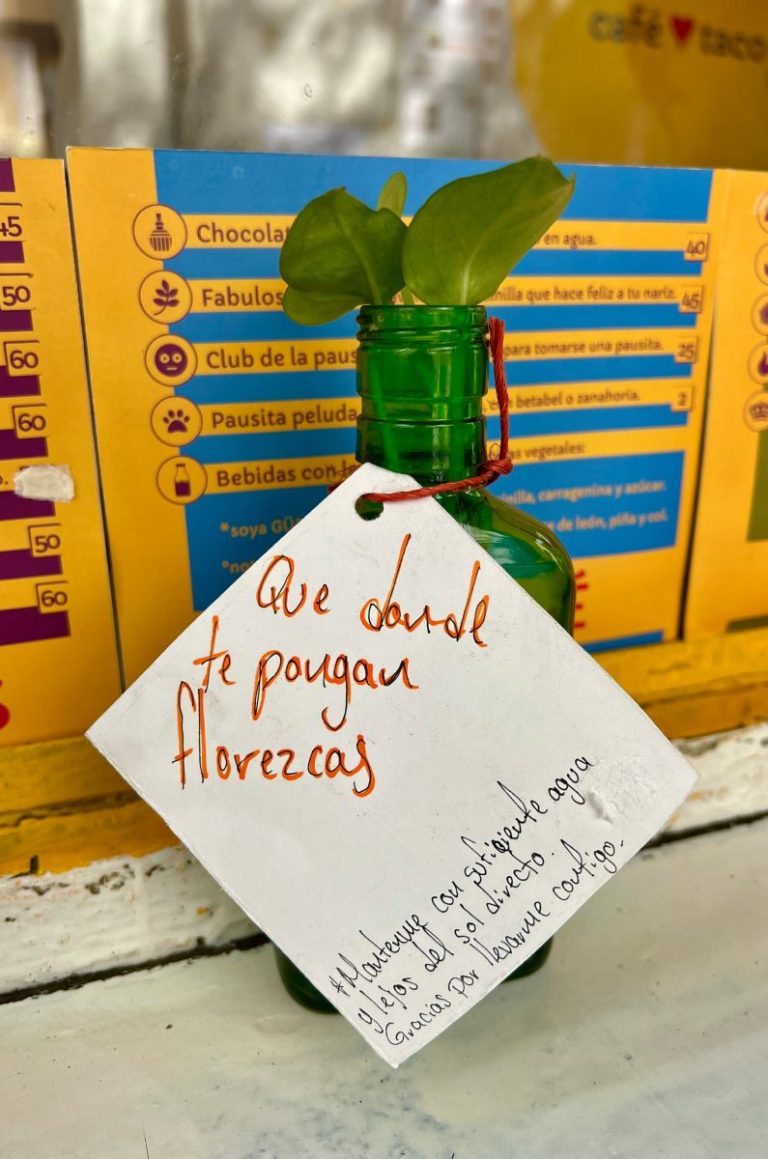 café taco
45
50
60
60
50
60
Chocolat en agua. 40
Fabulos nilla que hace feliz a tu nariz. 45
Club de la paus para tomarse una pausita. 25
Pausita peluda con betabel o zanahoria. 2
Bebidas con as vegetales:
*soya nilla, carragenina y azúcar.
e de león, piña y col.
Que donde
te pongan
florezcas
*Mantenme con suficiente agua
y lejos del sol directo.
Gracias por llevarme contigo.